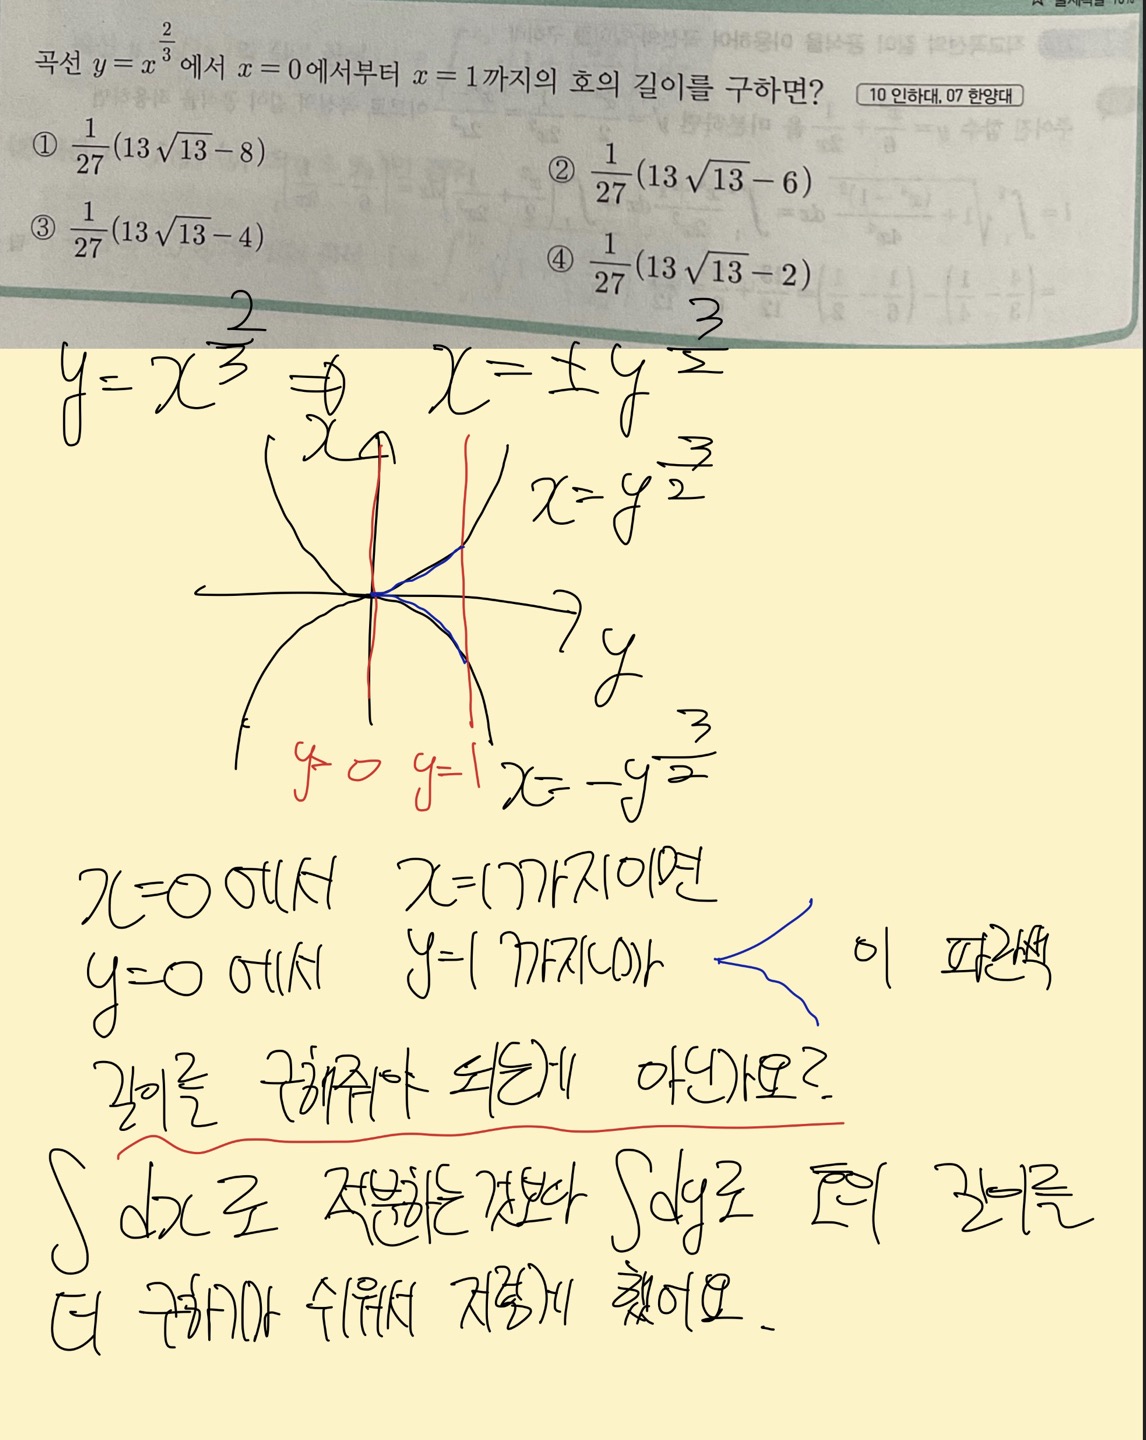 곡선 y = x^{2/3} 에서 x = 0에서부터 x = 1까지의 호의 길이를 구하면? 10 인하대, 07 한양대
① 1/27(13√13 − 8)
② 1/27(13√13 − 6)
③ 1/27(13√13 − 4)
④ 1/27(13√13 − 2)
y = x^{2/3} ⇒ x = ± y^{3/2}
x
x = y^{3/2}
y
y=0 y=1 x = −y^{3/2}
x=0 에서 x=1까지이면
y=0 에서 y=1까지니까 이 파란색
길이를 구해줘야 되는게 아닌가요?
∫dx로 적분하는것보다 ∫dy로 호의 길이를
더 구하기가 쉬워서 저렇게 했어요.